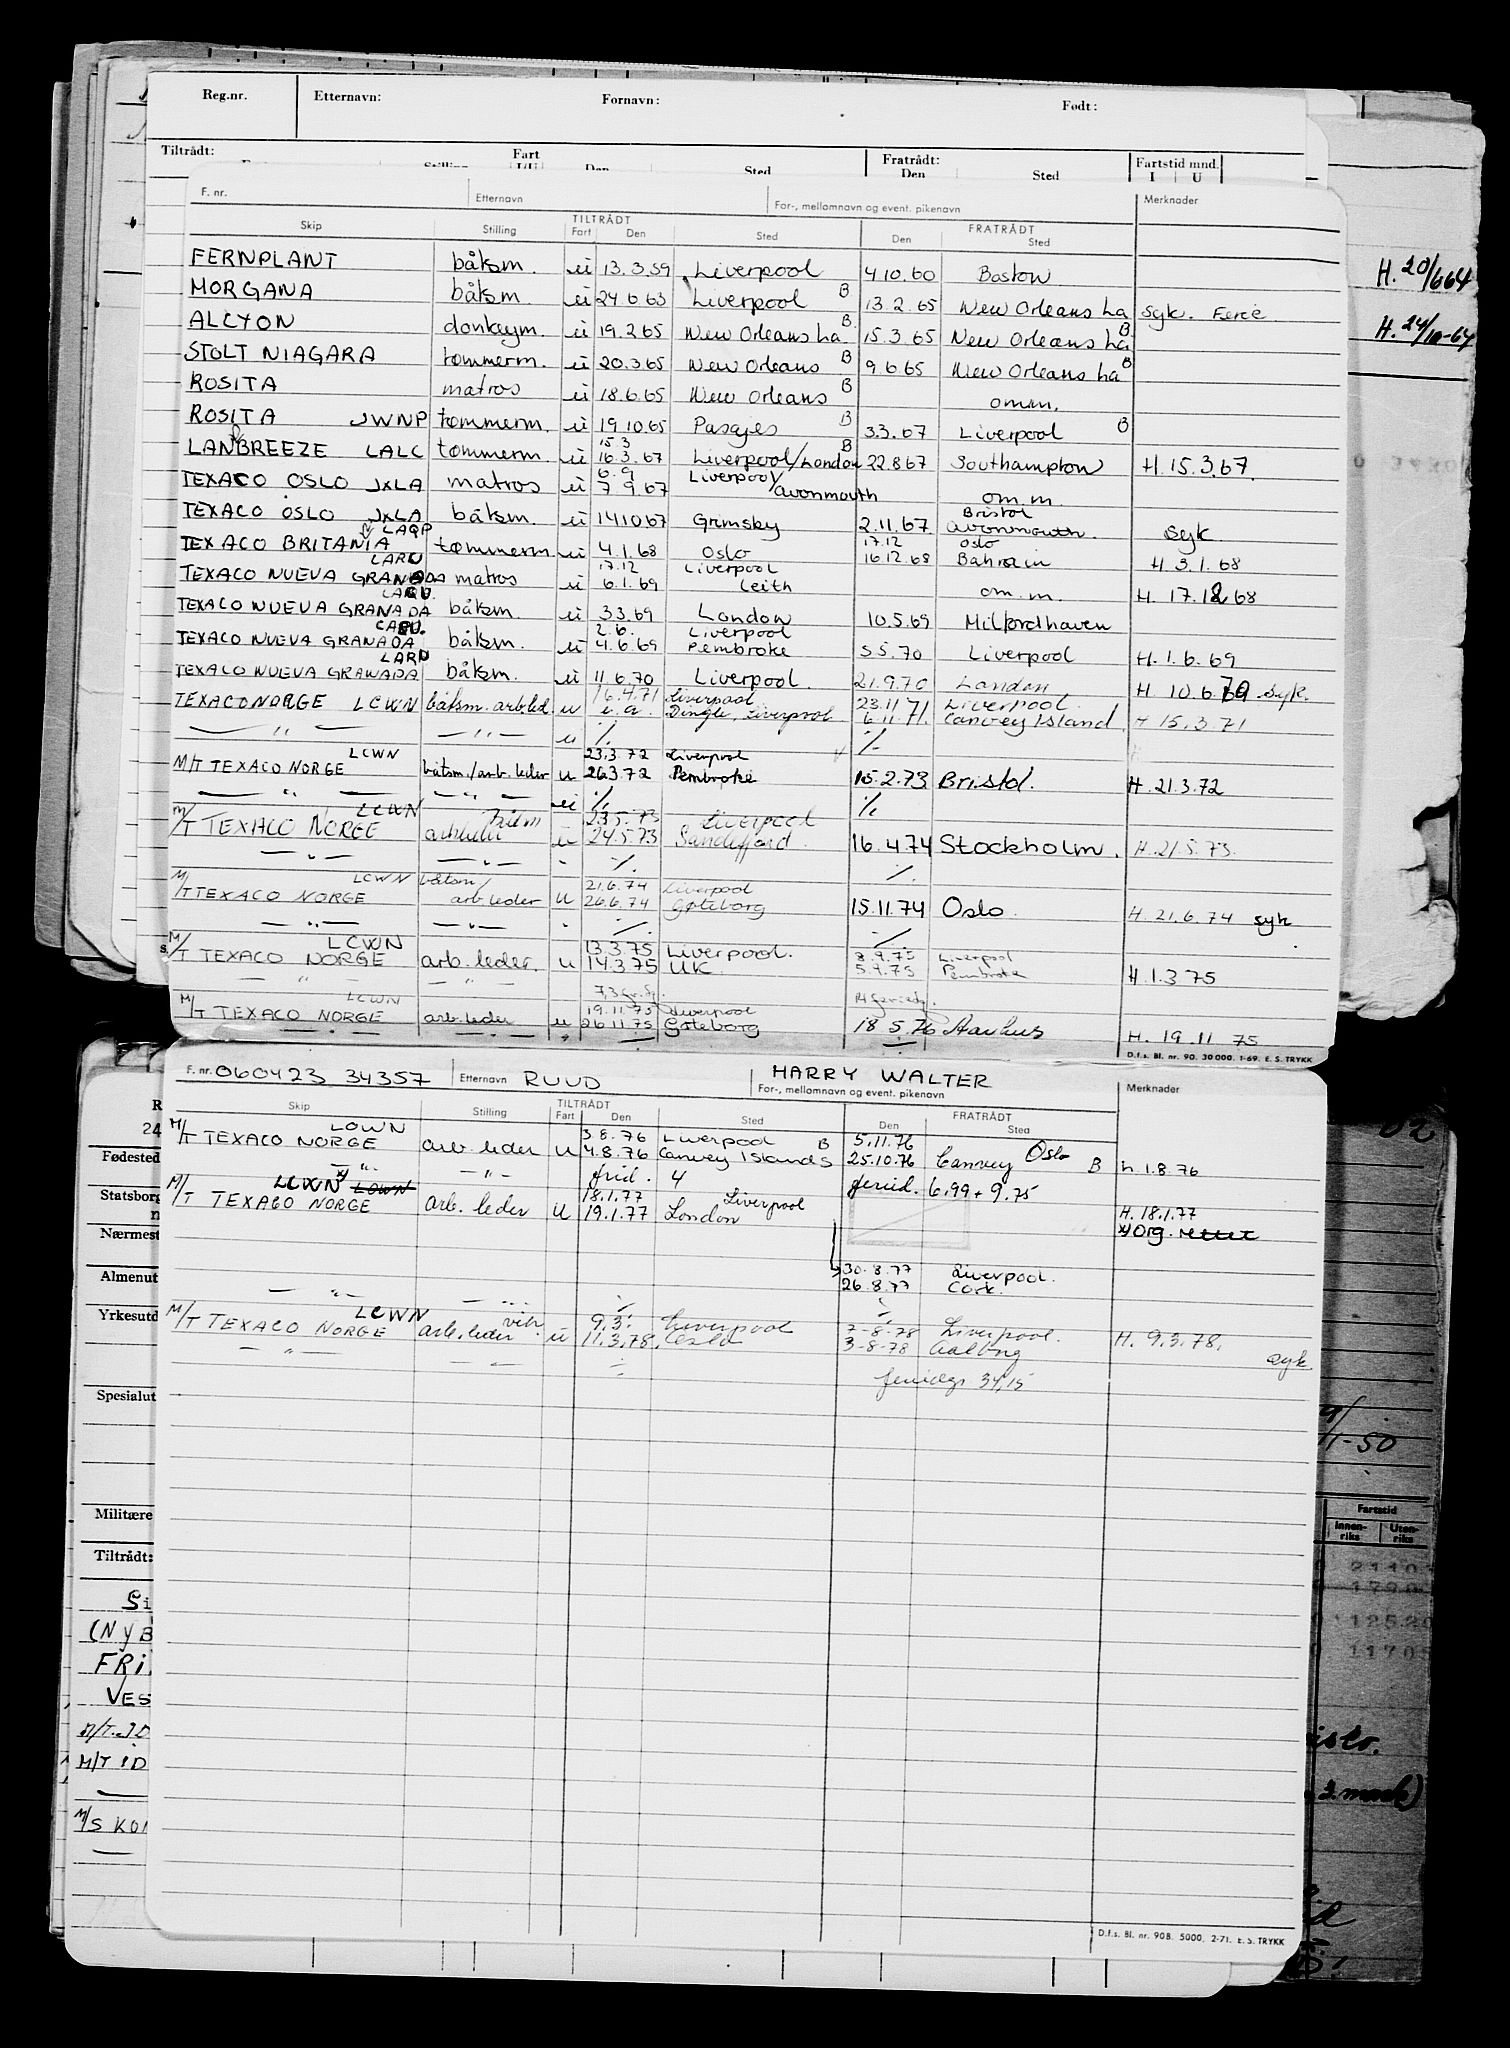 Reg.nr. Etternavn: Fornavn: Født:
Tiltrådt: Fart Fratrådt: Fartstid mnd.
Stilling I/U Den Sted Den Sted I U
F. nr. Etternavn For-, mellomnavn og event. pikenavn Merknader
TILTRÅDT FRATRÅDT
Skip Stilling Fart Den Sted Den Sted
FERNPLANT båtsm. u 13.3.59 Liverpool 4.10.60 Boston
MORGANA båtsm. u 24.6.63 Liverpool B 13.2.65 New Orleans La syk. Ferie
ALCYON donkeym. u 19.2.65 New Orleans La. B 15.3.65 New Orleans La B
STOLT NIAGARA tømmerm. u 20.3.65 New Orleans B 9.6.65 New Orleans La B
ROSITA matros u 18.6.65 New Orleans B omm.
ROSITA JWNP tømmerm. u 19.10.65 Pasajes B 3.3.67 Liverpool B
15.3
LANBREEZE LALC tømmerm. u 16.3.67 Liverpool/London B 22.8.67 Southampton H.15.3.67.
6.9 Liverpool/
TEXACO OSLO JXLA matros u 7.9.67 Avonmouth om.m.
Bristol
TEXACO OSLO JXLA båtsm. u 14.10.67 Grimsby 2.11.67. Avonmouth. syk.
LAQP 17.12 Oslo
TEXACO BRITANIA tømmerm. u 4.1.68 Oslo 16.12.68 Bahrain H 3.1.68
LARU 17.12 Liverpool
TEXACO NUEVA GRANADA matros u 6.1.69 Leith om.m. H. 17.12 68
TEXACO NUEVA GRANADA båtsm. u 3.3.69 London 10.5.69 Milfordhaven
2.6. Liverpool
TEXACO NUEVA GRANADA båtsm. u 4.6.69 Pembroke 5.5.70 Liverpool H.1.6.69
LARU
TEXACO NUEVA GRANADA båtsm. u 11.6.70 Liverpool. 21.9.70 London H 10.6.70 syk.
16.4.71 Liverpool 23.11 Liverpool.
TEXACO NORGE LCWN båtsm. arb.led. u Dingle, Liverpool 6.11.71. Canvey Island H 15.3.71
— " — — " — u ٪ ٪
LCWN 23.3.72 Liverpool
M/T TEXACO NORGE båtsm./arb. leder u 26.3.72 Pembroke 15.2.73 Bristol. H.21.3.72
— " — — " — u ٪ ٪
LCWN båtsm 23.5.73 Liverpool
M/T TEXACO NORGE arbleder u 24.5.73 Sandefjord. 16.4.74 Stockholm. H.21.5.73.
— " — — " — ٪ ٪
LCWN båtsm/ 21.6.74 Liverpool
M/T TEXACO NORGE arb. leder u 26.6.74 Gøteborg 15.11.74 Oslo. H.21.6.74 syk
— " — — " — ٪ ٪
LCWN 13.3.75 Liverpool. 8.9.75 Liverpool
M/T TEXACO NORGE arb. leder. u 14.3.75 UK. 5.9.75 Pembroke H.1.3 75
LCWN 19.11.75 Liverpool
M/T TEXACO NORGE arb.leder u 26.11.75 Gøteborg 18.5.76 Aarhus H. 19.11 75
D.f.s. Bl. nr. 90. 30 000. 1-69. E. S. TRYKK
F. nr. 060423 34357 Etternavn RUUD HARRY WALTER
For-, mellomnavn og event. pikenavn Merknader
TILTRÅDT FRATRÅDT
Skip Stilling Fart Den Sted Den Sted
LCWN 3.8.76 Liverpool B 5.11.76 Oslo
M/T TEXACO NORGE arb. leder u 4.8.76 Canvey Islands 25.10.76 Canvey B h 1.8.76
— " — — " — frid. 4 feried. 6.99 + 9.75
LCWN x) LOWN 18.1.77 Liverpool
M/T TEXACO NORGE arb. leder u 19.1.77 London H.18.1.77
x) Org. rettet
30.8.77 Liverpool.
26.8.77 Cork.
LCWN vikr. 9.3. Liverpool 7-8-78 Liverpool.
M/T TEXACO NORGE arb.leder u 11.3.78. Oslo 3-8-78 Aalborg H. 9.3.78.
syk
feriedgr 34,15
D.f.s. Bl. nr. 90B. 5000, 2-71. E. S. TRYKK
H. 20/664
H. 24/10-64
Fødested
Statsborg
Nærmest
Almenut
Yrkesutd
Spesialut
Militære
Tiltrådt:
Si
(NYB
FRI
VES
M/T. ID
M/T ID
M/S KON
1-50
Fartstid
Innen-riks Uten-riks
1252
1170